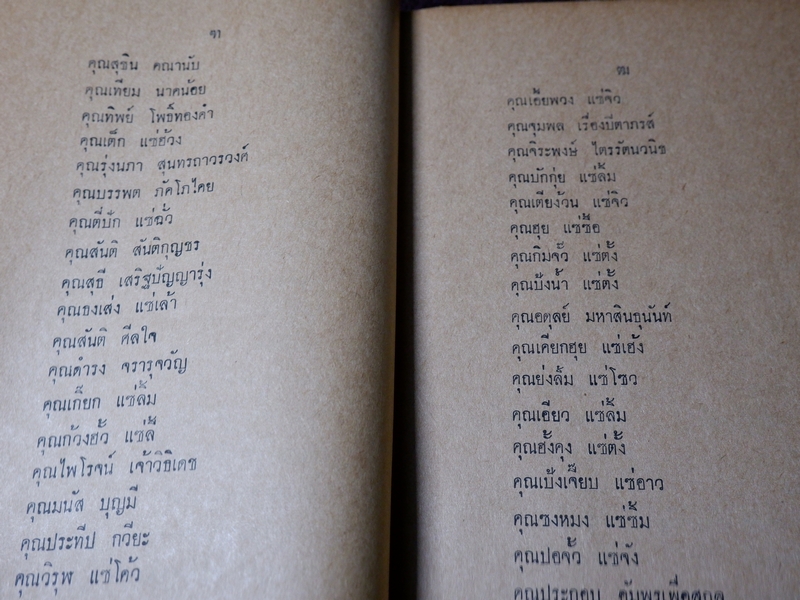 ฑ
คุณสุขิน คณานับ
คุณเทียม นาคน้อย
คุณทิพย์ โพธิ์ทองคำ
คุณเต็ก แซ่อ้วง
คุณรุ่งนภา สุนทรถาวรวงศ์
คุณบรรพต ภัคโภไคย
คุณตี่บัก แซ่ฉั้ว
คุณสันติ สันติกุญชร
คุณสุธี เสริฐปัญญารุ่ง
คุณธงเส่ง แซ่เล้า
คุณสันติ ศีลใจ
คุณดำรง จรารุจวัญ
คุณเกี๊ยก แซ่ลิ้ม
คุณก้วงฮั้ว แซ่ลี้
คุณไพโรจน์ เจ้าวิธิเดช
คุณมนัส บุญมี
คุณประทีป กวียะ
คุณวิรุฬ แซ่โค้ว
ฒ
คุณเอี้ยพวง แซ่จิว
คุณจุมพล เรืองปิตาภรส์
คุณจิระพงษ์ ไตรรัตนวนิช
คุณบักกุ่ย แซ่ลิ้ม
คุณเตียง้วน แซ่จิว
คุณฮุย แซ่ซื้อ
คุณกิมจั๊ว แซ่ตั้ง
คุณบ๊งน้ำ แซ่ตั้ง
คุณอตุลย์ มหาสินธุนันท์
คุณเคี่ยกฮุย แซ่เฮ้ง
คุณย่งลิ้ม แซ่โซว
คุณเฮียว แซ่ลิ้ม
คุณฮั้งคุง แซ่ตั้ง
คุณเป๊งเจี๊ยบ แซ่อาว
คุณชงหมง แซ่ซิ้ม
คุณปอจั๊ว แซ่จัง
คุณประกอบ